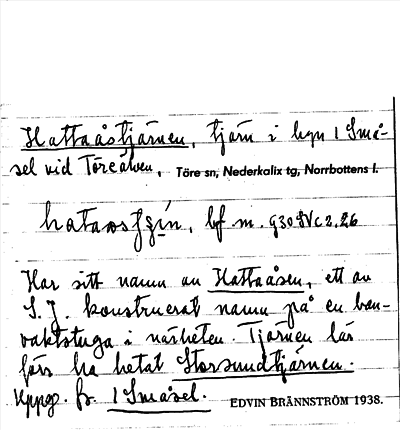 Hattaåstjärnen, tjärn i byn 1 Små-
sel vid Töreälven, Töre sn, Nederkalix tg, Norrbottens l.
bf m. G30 IV c 2, 26
Har sitt namn av Hattaåsen, ett av
S. J. konstruerat namn på en ban-
vaktstuga i närheten. Tjärnen lär
förr ha hetat Storsundtjärnen.
Uppg. fr. 1 Småsel. EDVIN BRÄNNSTRÖM 1938.